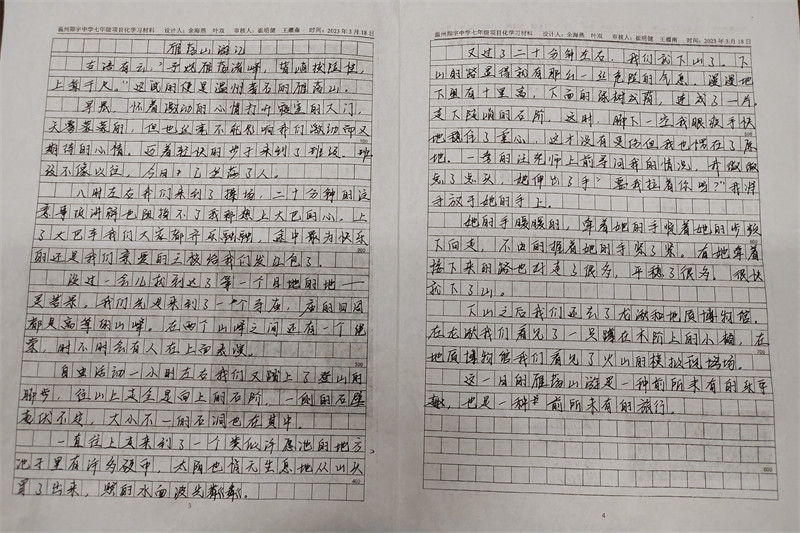 温州翔宇中学七年级项目化学习材料 设计人：余海燕 叶双 审核人：崔培健 王 时间：2023年3月18日
雁荡山游记
古语有云，"寻雁荡诸峰，皆峭拔险怪，
上耸千尺。"这说的便是温州著名的雁荡山。
早晨，怀着激动的心情打开寝室的大门，
天雾茫茫的，但也丝毫不能影响我们激动而又
期待的心情。迈着轻快的步子来到了班级，班
级不像以往，今日坐满了人。
八时左右我们来到了操场，二十分钟的注
意事项讲解也阻挡不了我那想上大巴的心。上
了大巴车我们大家都其乐融融，途中最为快乐
的还是我们亲爱的主校给我们发红包了。
没过一会儿就到达了第一个目地的地——
灵岩景。我们先是来到了一个寺庙，庙的四周
都是高耸的山峰。在两个山峰之间还有一个绳
索，时不时会有人在上面表演。
自由活动一小时左右我们又踏上了登山的
脚步，往山上走全是向上的石阶，一侧的石壁
起伏不定，大小不一的石洞也在其中。
一直往上走来到了一个类似许愿池的地方，
池子里有许多硬币，太阳也悄无生息地从山头
冒了出来，照的水面波光粼粼。
3
温州翔宇中学七年级项目化学习材料 设计人：余海燕 叶双 审核人：崔培健 王 时间：2023年3月18日
又过了二十分钟左右，我们就下山了。下
山的路里借就有那么一丝危险的气息。漫漫地
下组有十里高，下面的绿树成荫，连成了一片。
走下段峭的石阶，这时，脚下一空我眼疾手快
地稳住了重心，这才没有受伤但我也愣在了原
地。一旁的汪老师上前寻问我的情况，我傲傲
点了点头，她伸出了手"要我拉着你吗？"我将
手放于她的手上。
她的手暖暖的，牵着她的手顺着她的步伐
下向走，不由的握着她的手紧了紧。有她牵着
接下来的路也好走了很多，平稳了很多。很快
就下了山。
下山之后我们还去了龙湫和地质博物馆。
在龙湫我们看见了一只蹲在木阶上的小猫，在
地质博物馆我们看见了火山的模拟现场场。
这一日的雁荡山游是一种前所未有的乐乎
趣，也是一种前所未有的旅行。
4